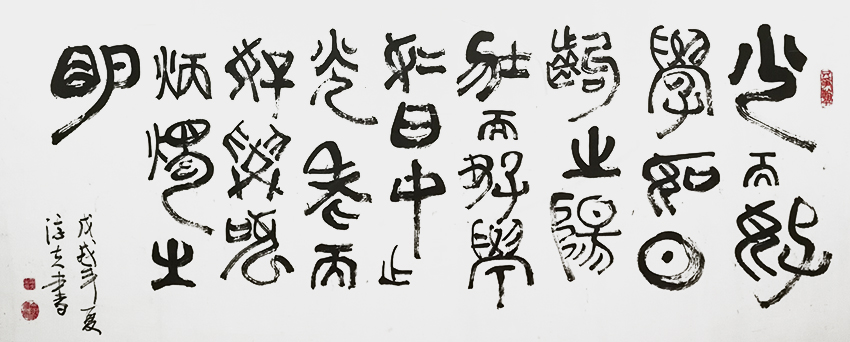 少而好
學如日
齣之陽
壯而好學
如日中之
光老而
好學如
炳燭之
明
戊戌年夏
書